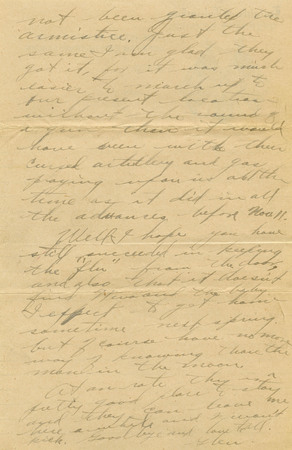 not been granted the
armistice. Just the
same I am glad they
got it, for it was much
easier to march up to
our present location
without the sound of
a gun, than it would
have been with their
cursed artillery and gas
playing upon us all the
time as it did in all
the advances before Nov 11.
Well I hope you have
still succeeded in keeping
the "flu" from the door
and also that it doesn't
find and the baby.
I expect to get home
sometime next spring
but of course have no more
way of knowing than the
man in the moon.
At any rate they
pretty good place to stay
and they can leave me
here awhile and I won't
kick. Good bye and love to all.